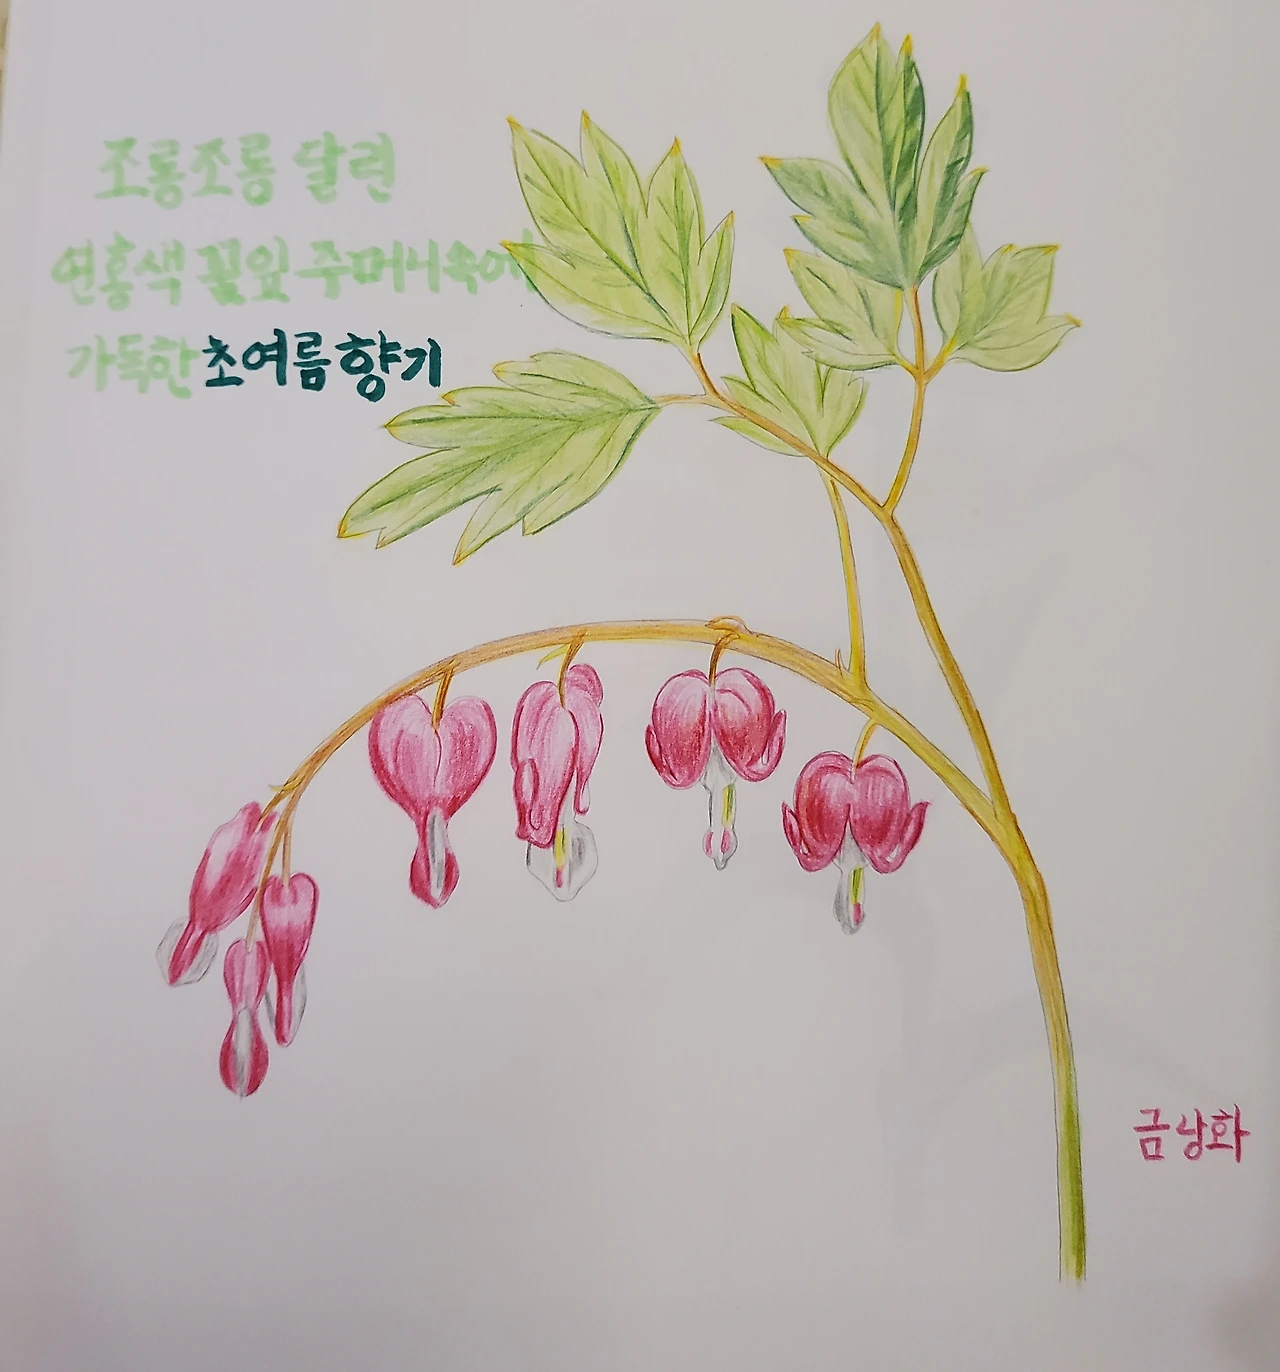 조롱조롱 달련
연홍색 꽃잎 주머니속에
가득한 초여름 향기
금낭화